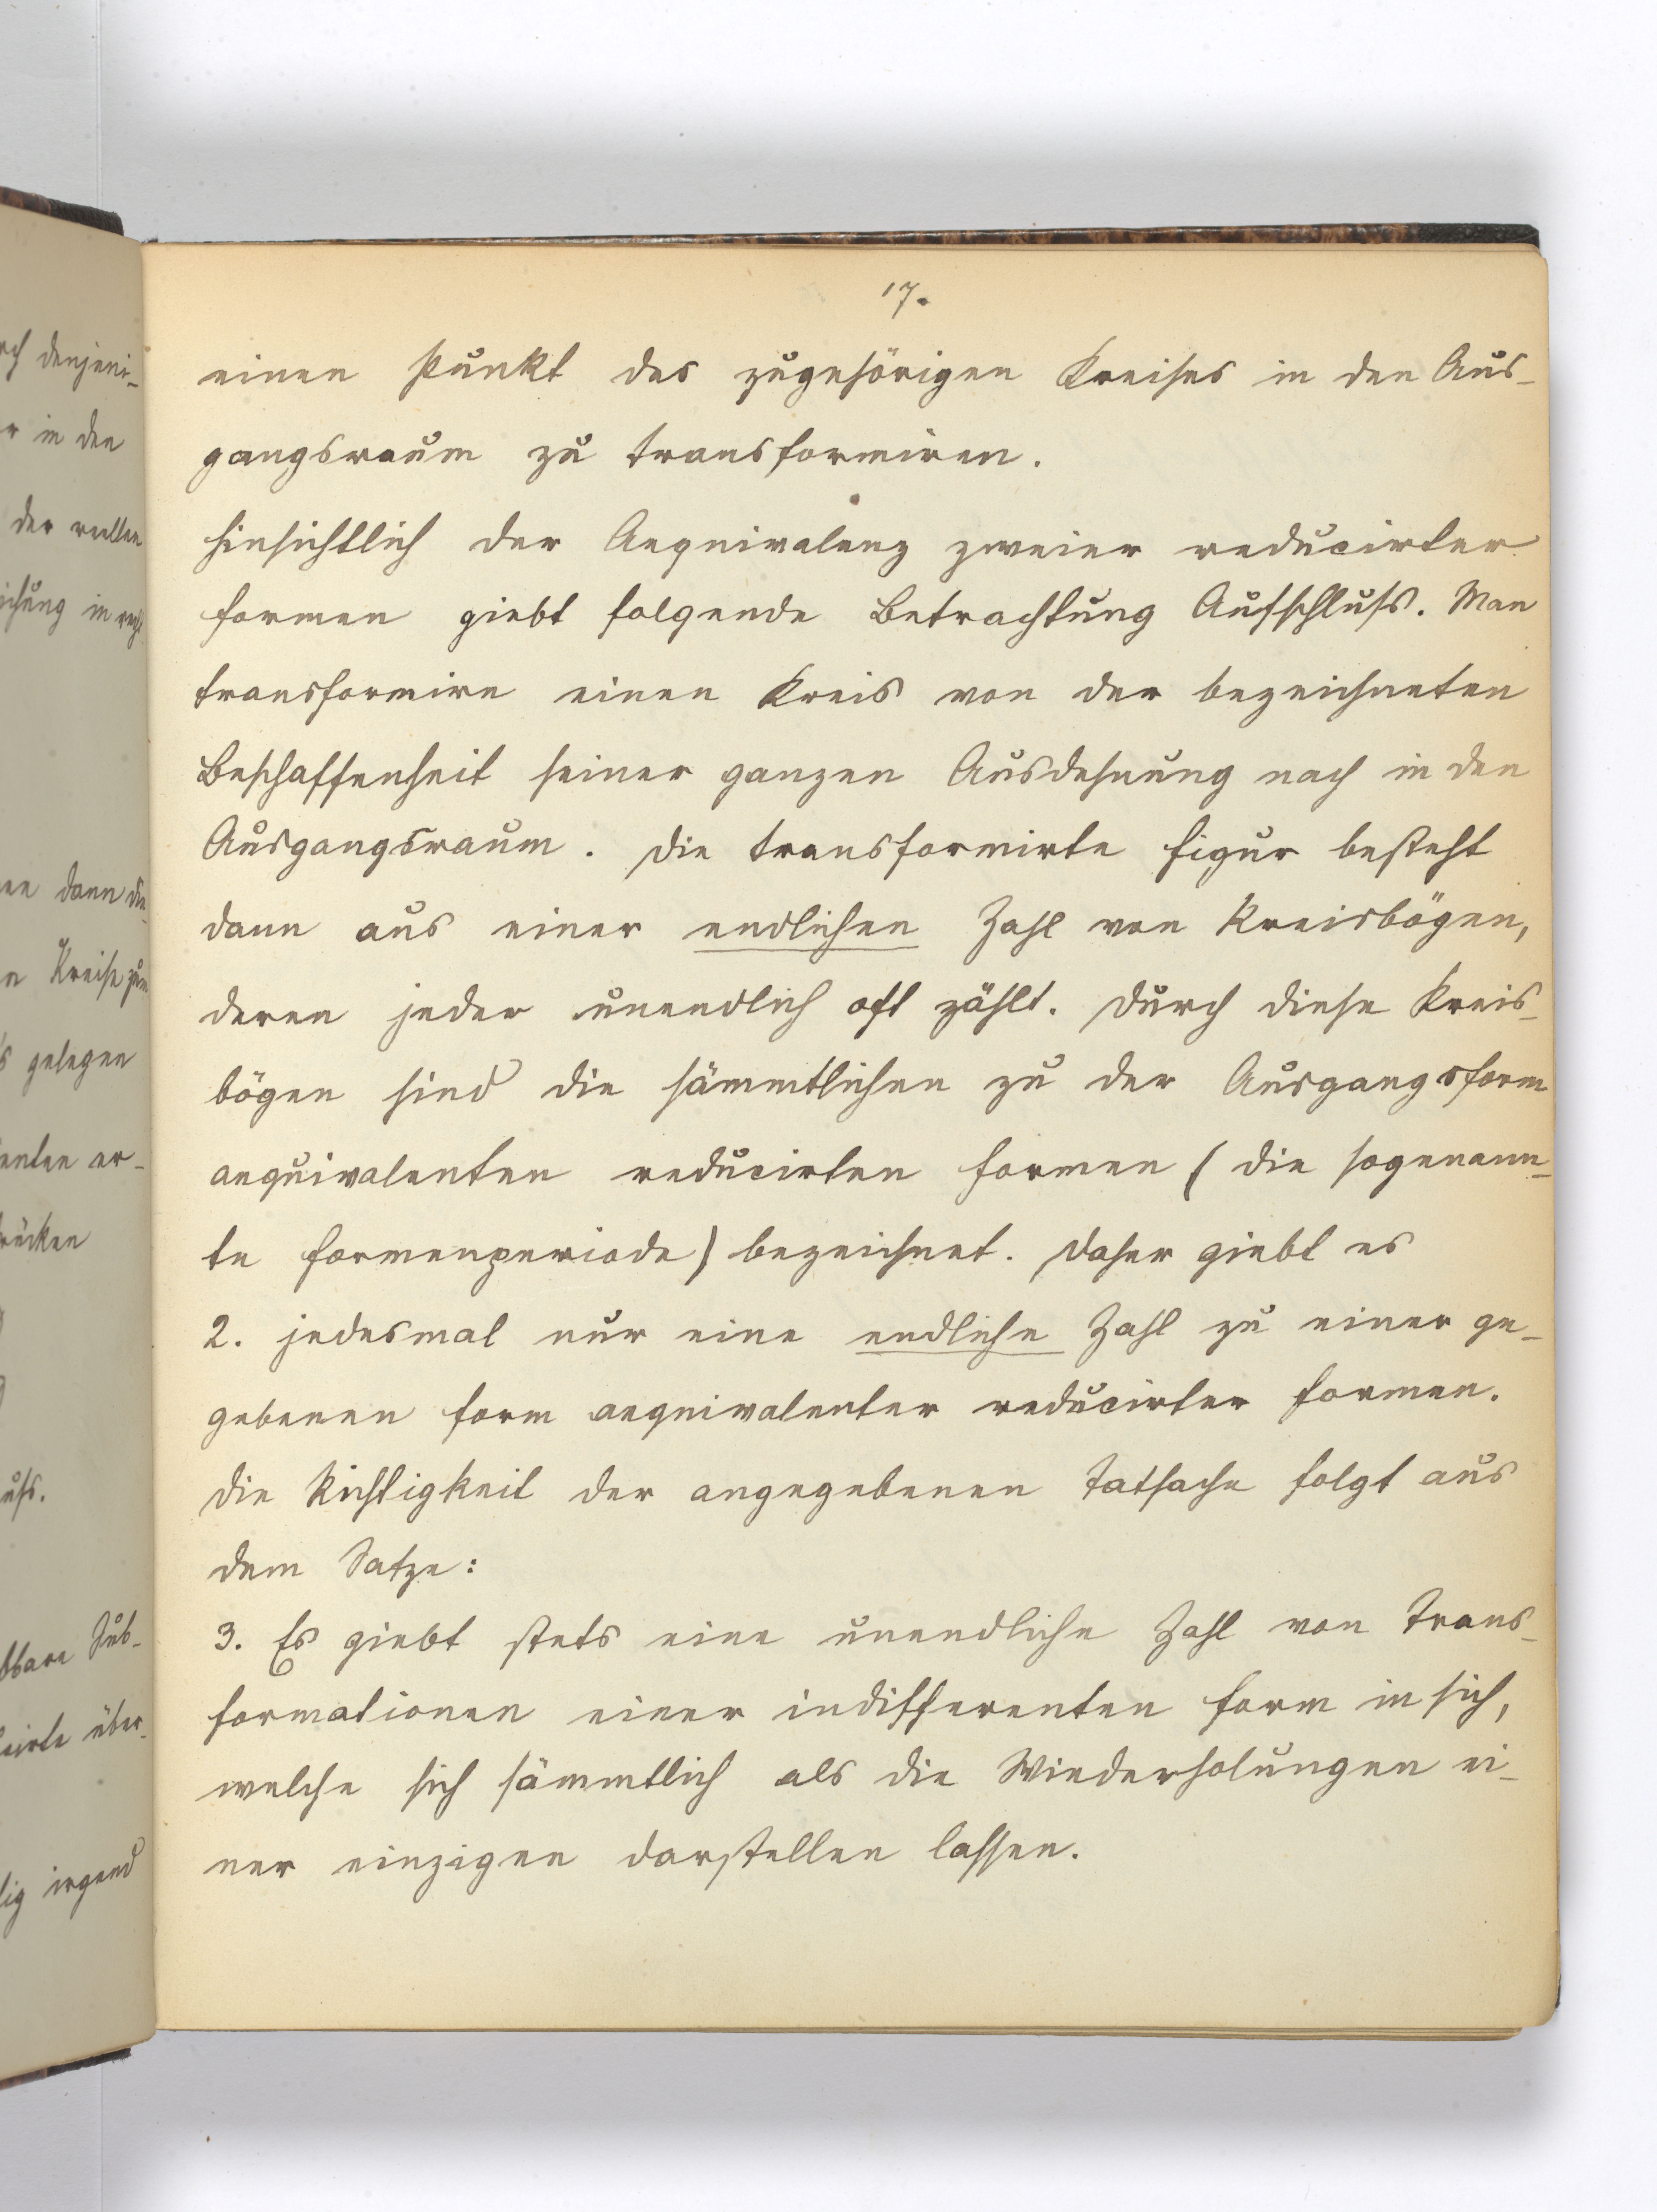 17.
einen Punkt des zugehörigen Kreises in den Aus-
gangsraum zu transformiren.
Hinsichtlich der Aequivalenz zweier reducirter
Formen giebt folgende Betrachtung Aufschluss. Man
transformire einen Kreis von der bezeichneten
Beschaffenheit seiner ganzen Ausdehnung nach in den
Ausgangsraum. Die transformirte Figur besteht
dann aus einer endlichen Zahl von Kreisbögen,
deren jeder unendlich oft zählt. Durch diese Kreis-
bögen sind die sämmtlichen zu der Ausgangsform
aequivalenten reducirten Formen (die sogenann-
te Formenperiode) bezeichnet. Daher giebt es
2. jedesmal nur eine endliche Zahl zu einer ge-
gebenen Form aequivalenter reducirter Formen.
Die Richtigkeit der angegebenen Tatsache folgt aus
dem Satze:
3. Es giebt stets eine unendliche Zahl von Trans-
formationen einer indifferenten Form in sich,
welche sich sämmtlich als die Wiederholungen ei-
ner einzigen darstellen lassen.
denjeni-
in den
der reellen
dann
Kreise
gelegen
irgend